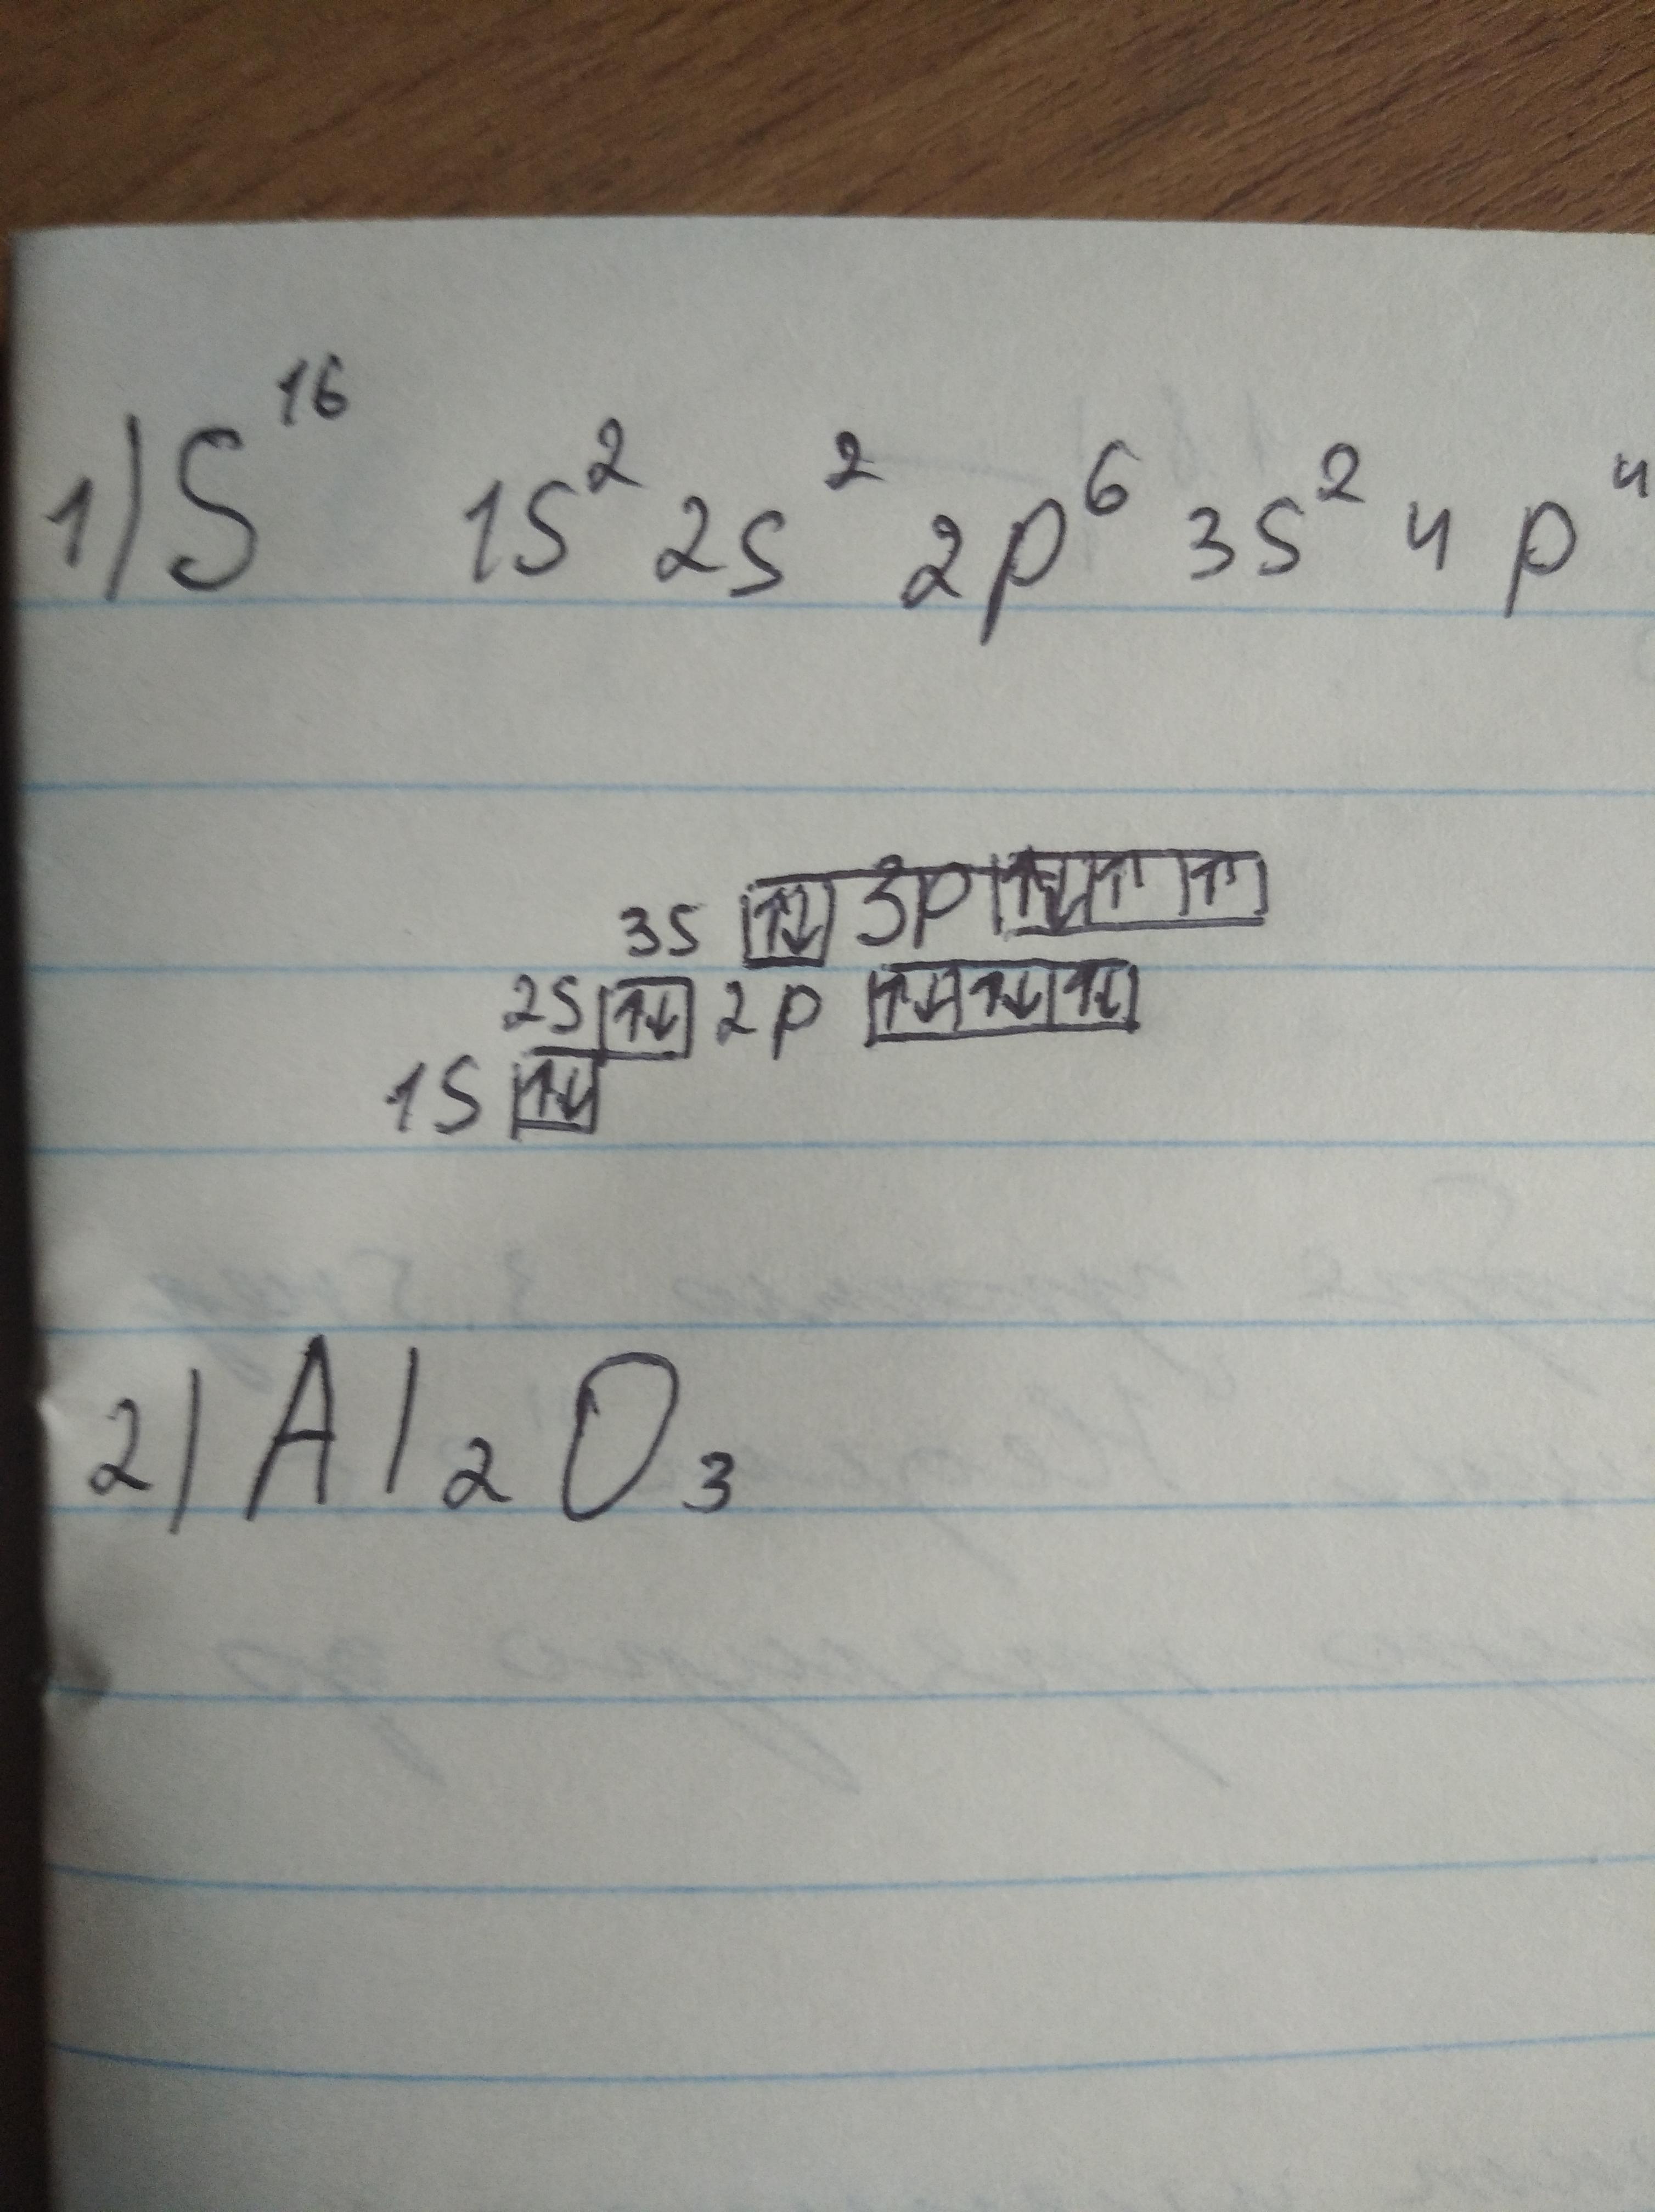 1) S¹⁶ 1s² 2s² 2p⁶ 3s² 4p⁴
3s ↑↓ 3p ↑↓ ↑ ↑
2s ↑↓ 2p ↑↓ ↑↓ ↑↓
1s ↑↓
2) Al₂O₃